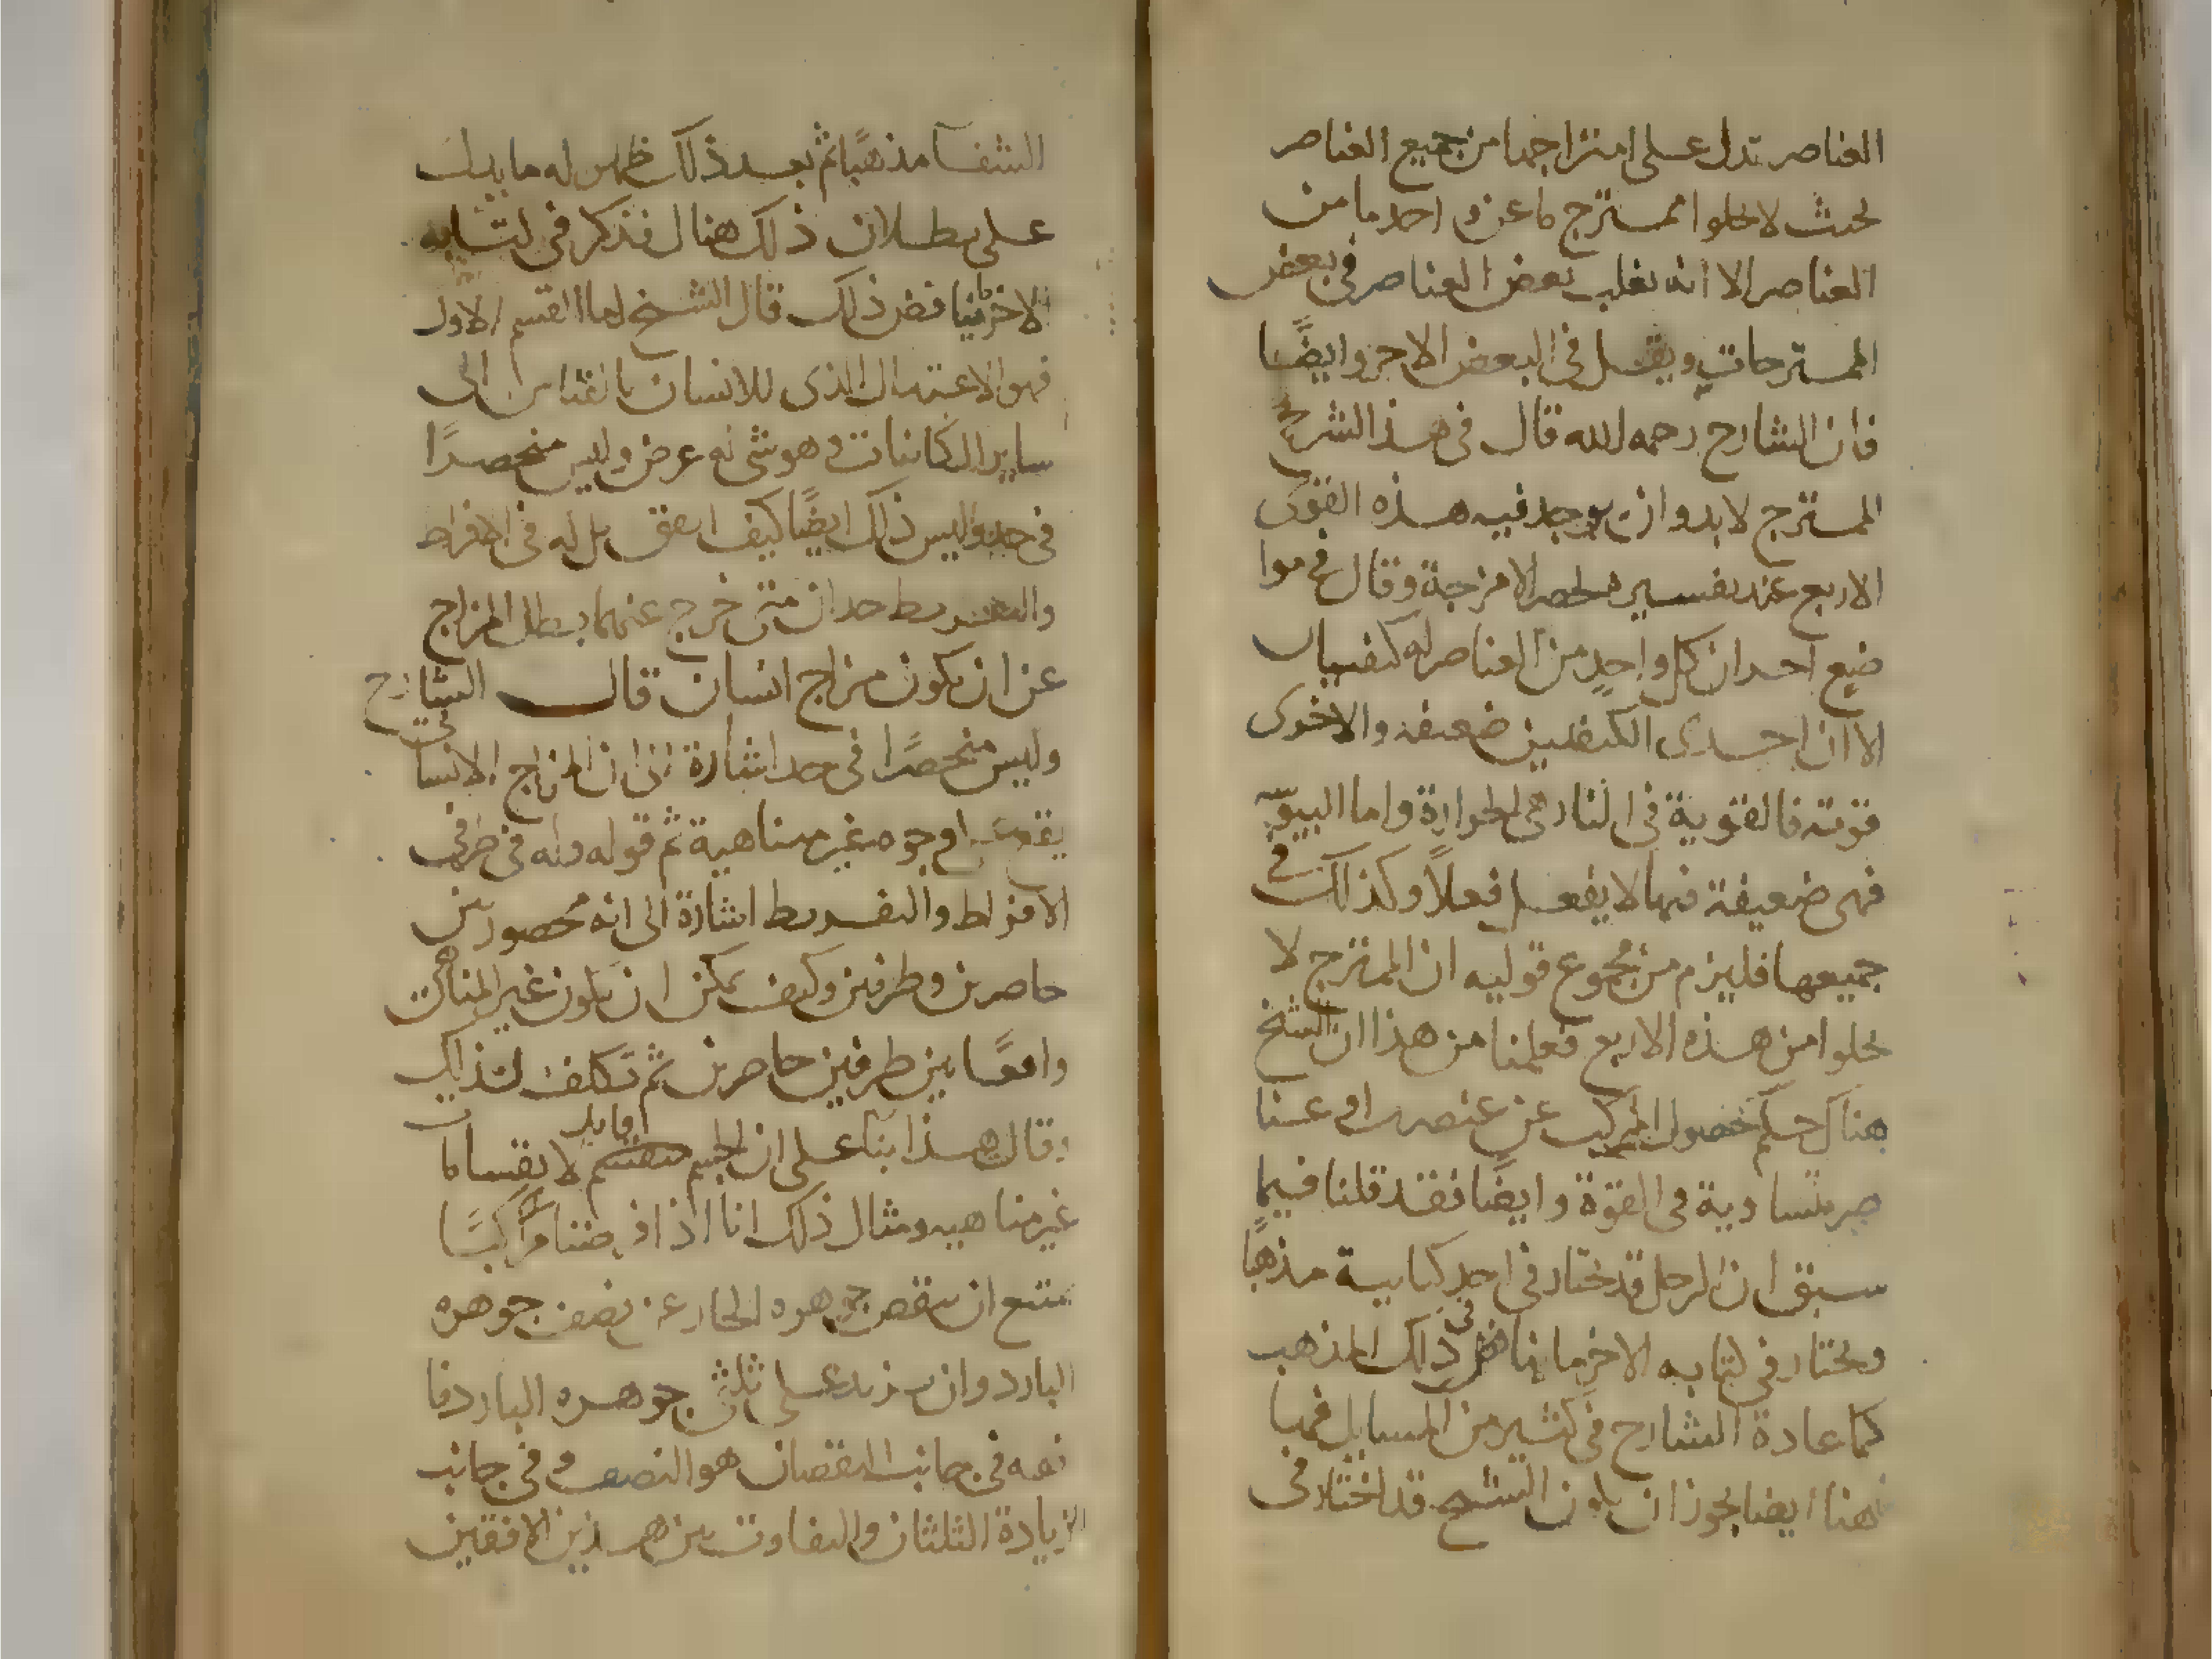 العناصر تدل على امتزاجها من جميع العناصر
بحيث لا يخلوا ممتزج ما عن واحد ما من
العناصر الا انه يغلب بعض العناصر في بعض
الممتزجات ويقل في البعض الاخر وايضًا
فان الشارح رحمه الله قال في هذا الشرح
الممتزج لا بد وان يوجد فيه هذه القوى
الاربع عند تفسير الامزجة وقال في موا
ضع احد ان كل واحدٍ من العناصر له كيفيتان
الا ان احدى الكيفيتين ضعيفة والاخرى
قوية فالقوية في النار هي الحرارة واما اليبوسة
فهى ضعيفة فيها لا يفعل فعلاً وكذلك في
جميعها فليزم من مجموع قوليه ان الممتزج لا
يخلوا من هذه الاربع فعلمنا من هذا ان الشيخ
هناك حكم بحصول المركب عن عنصرين او عنا
صر متساوية في القوة وايضًا فقد قلنا فيما
سبق ان الرجل قد يختار في احد كتابيه مذهبًا
ويختار في كتابه الاخر ما يناقض ذلك المذهب
كما عادة الشارح في كثير من المسايل فيها
هنا ايضا يجوز ان يكون الشيخ قد اختار في
الشفا مذهبًا ثم بعد ذلك ظهر له ما يدل
على بطلان ذلك هنال فذكر في كتابه
الاخر ما يناقض ذلك قال الشيخ اما القسم الاول
فهو الاعتدال الذى للانسان بالقياس الى
ساير الكاينات وهو شى له عرض وليس منحصرًا
في حد وليس ذلك ايضًا كيف اتفق بل له في الافراط
والتفريط حدان متى خرج عنهما بطل المزاج
عن ان يكون مزاج انسان قال الشارح
وليس منحصرًا في حد اشارة الى ان المزاج الانسا
ني يقع على وجوه غير متناهية ثم قوله وله في طرفي
الافراط والتفريط اشارة الى انه محصور بين
حاصرين وطرفين وكيف يمكن ان يكون غير المتناهي
واقعًا بين طرفين حاصرين ثم تكلف لذلك
وقال هذا بناء على ان الجسم قابل لانقسامات
غير متناهيه ومثال ذلك انا اذا فرضنا مركبًا
يمتنع ان ينقص جوهره الحار عن نصف جوهره
البارد وان يزيد على ثلثي جوهره البارد فا
نه في جانب النقصان هو النصف وفي جانب
الزيادة الثلثان والتفاوت بين هذين الافقين